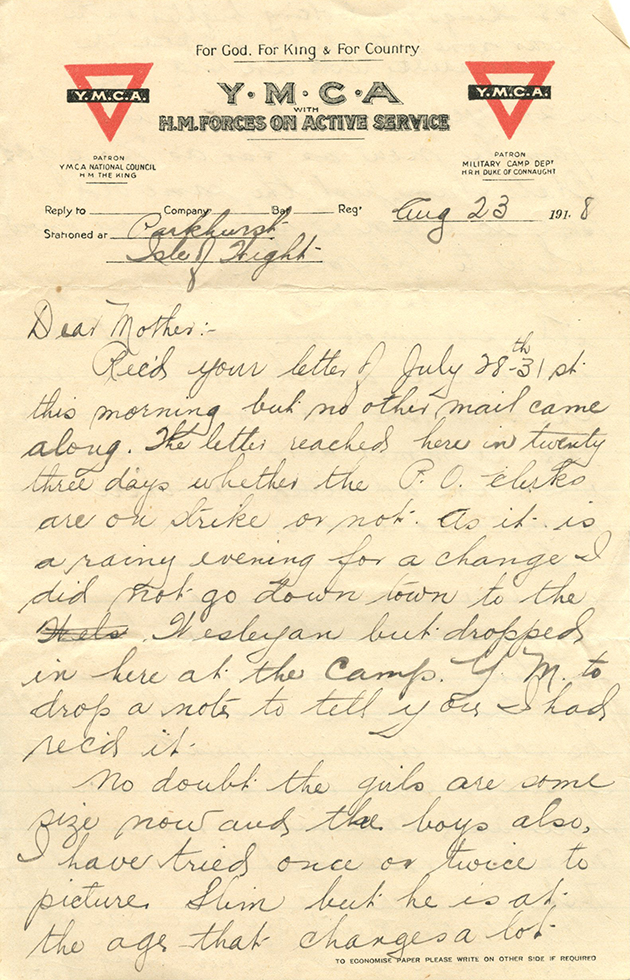 For God. For King & For Country
Y·M·C·A
WITH
H.M. FORCES ON ACTIVE SERVICE
Y.M.C.A.
Y.M.C.A.
PATRON
Y.M.C.A. NATIONAL COUNCIL
H M THE KING
PATRON
MILITARY CAMP DEPT
H R H DUKE OF CONNAUGHT
Reply to Company Bat Reg' Aug 23 191 8
Stationed at Parkhurst
Isle of Wight
Dear Mother:-
Rec'd your letter of July 28th-31st
this morning but no other mail came
along. The letter reached here in twenty
three days whether the P.O. clerks
are on strike or not. As it is
a rainy evening for a change I
did not go down town to the
Wesleyan but dropped
in here at the Camp Y.M. to
drop a note to tell you I had
rec'd it.
No doubt the girls are some
size now and the boys also,
I have tried once or twice to
picture Slim but he is at
the age that changes a lot
TO ECONOMISE PAPER PLEASE WRITE ON OTHER SIDE IF REQUIRED